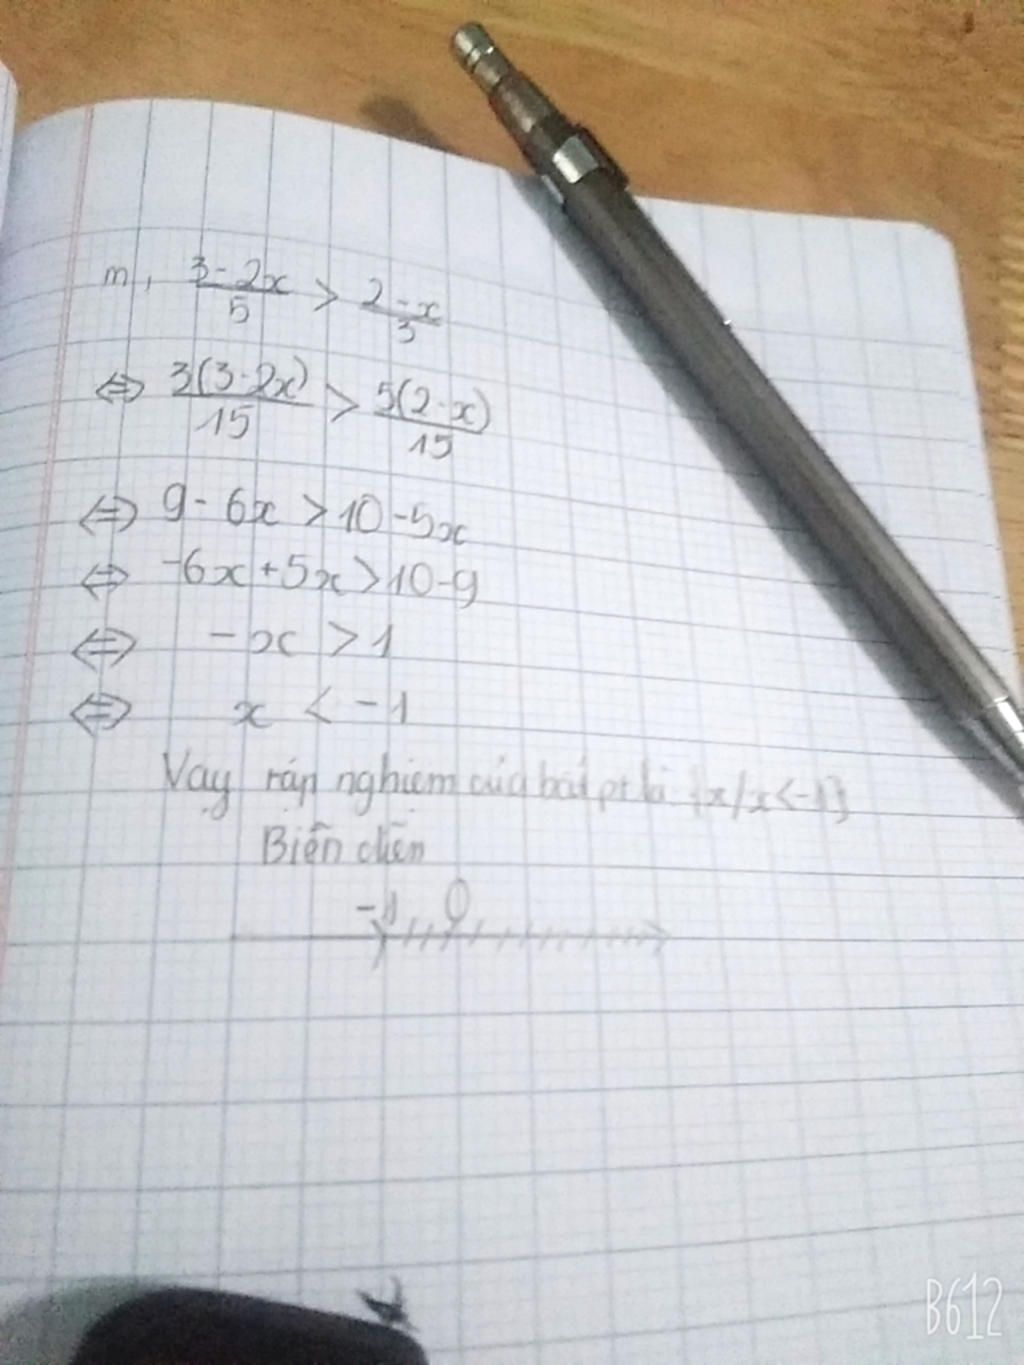 m, 3-2x/5 > 2-x/3
⇔ 3(3-2x)/15 > 5(2-x)/15
⇔ 9-6x > 10-5x
⇔ -6x+5x > 10-9
⇔ -x > 1
⇔ x < -1
Vậy tập nghiệm của bất pt là {x/x<-1}
Biễn diễn
-1 0
B612